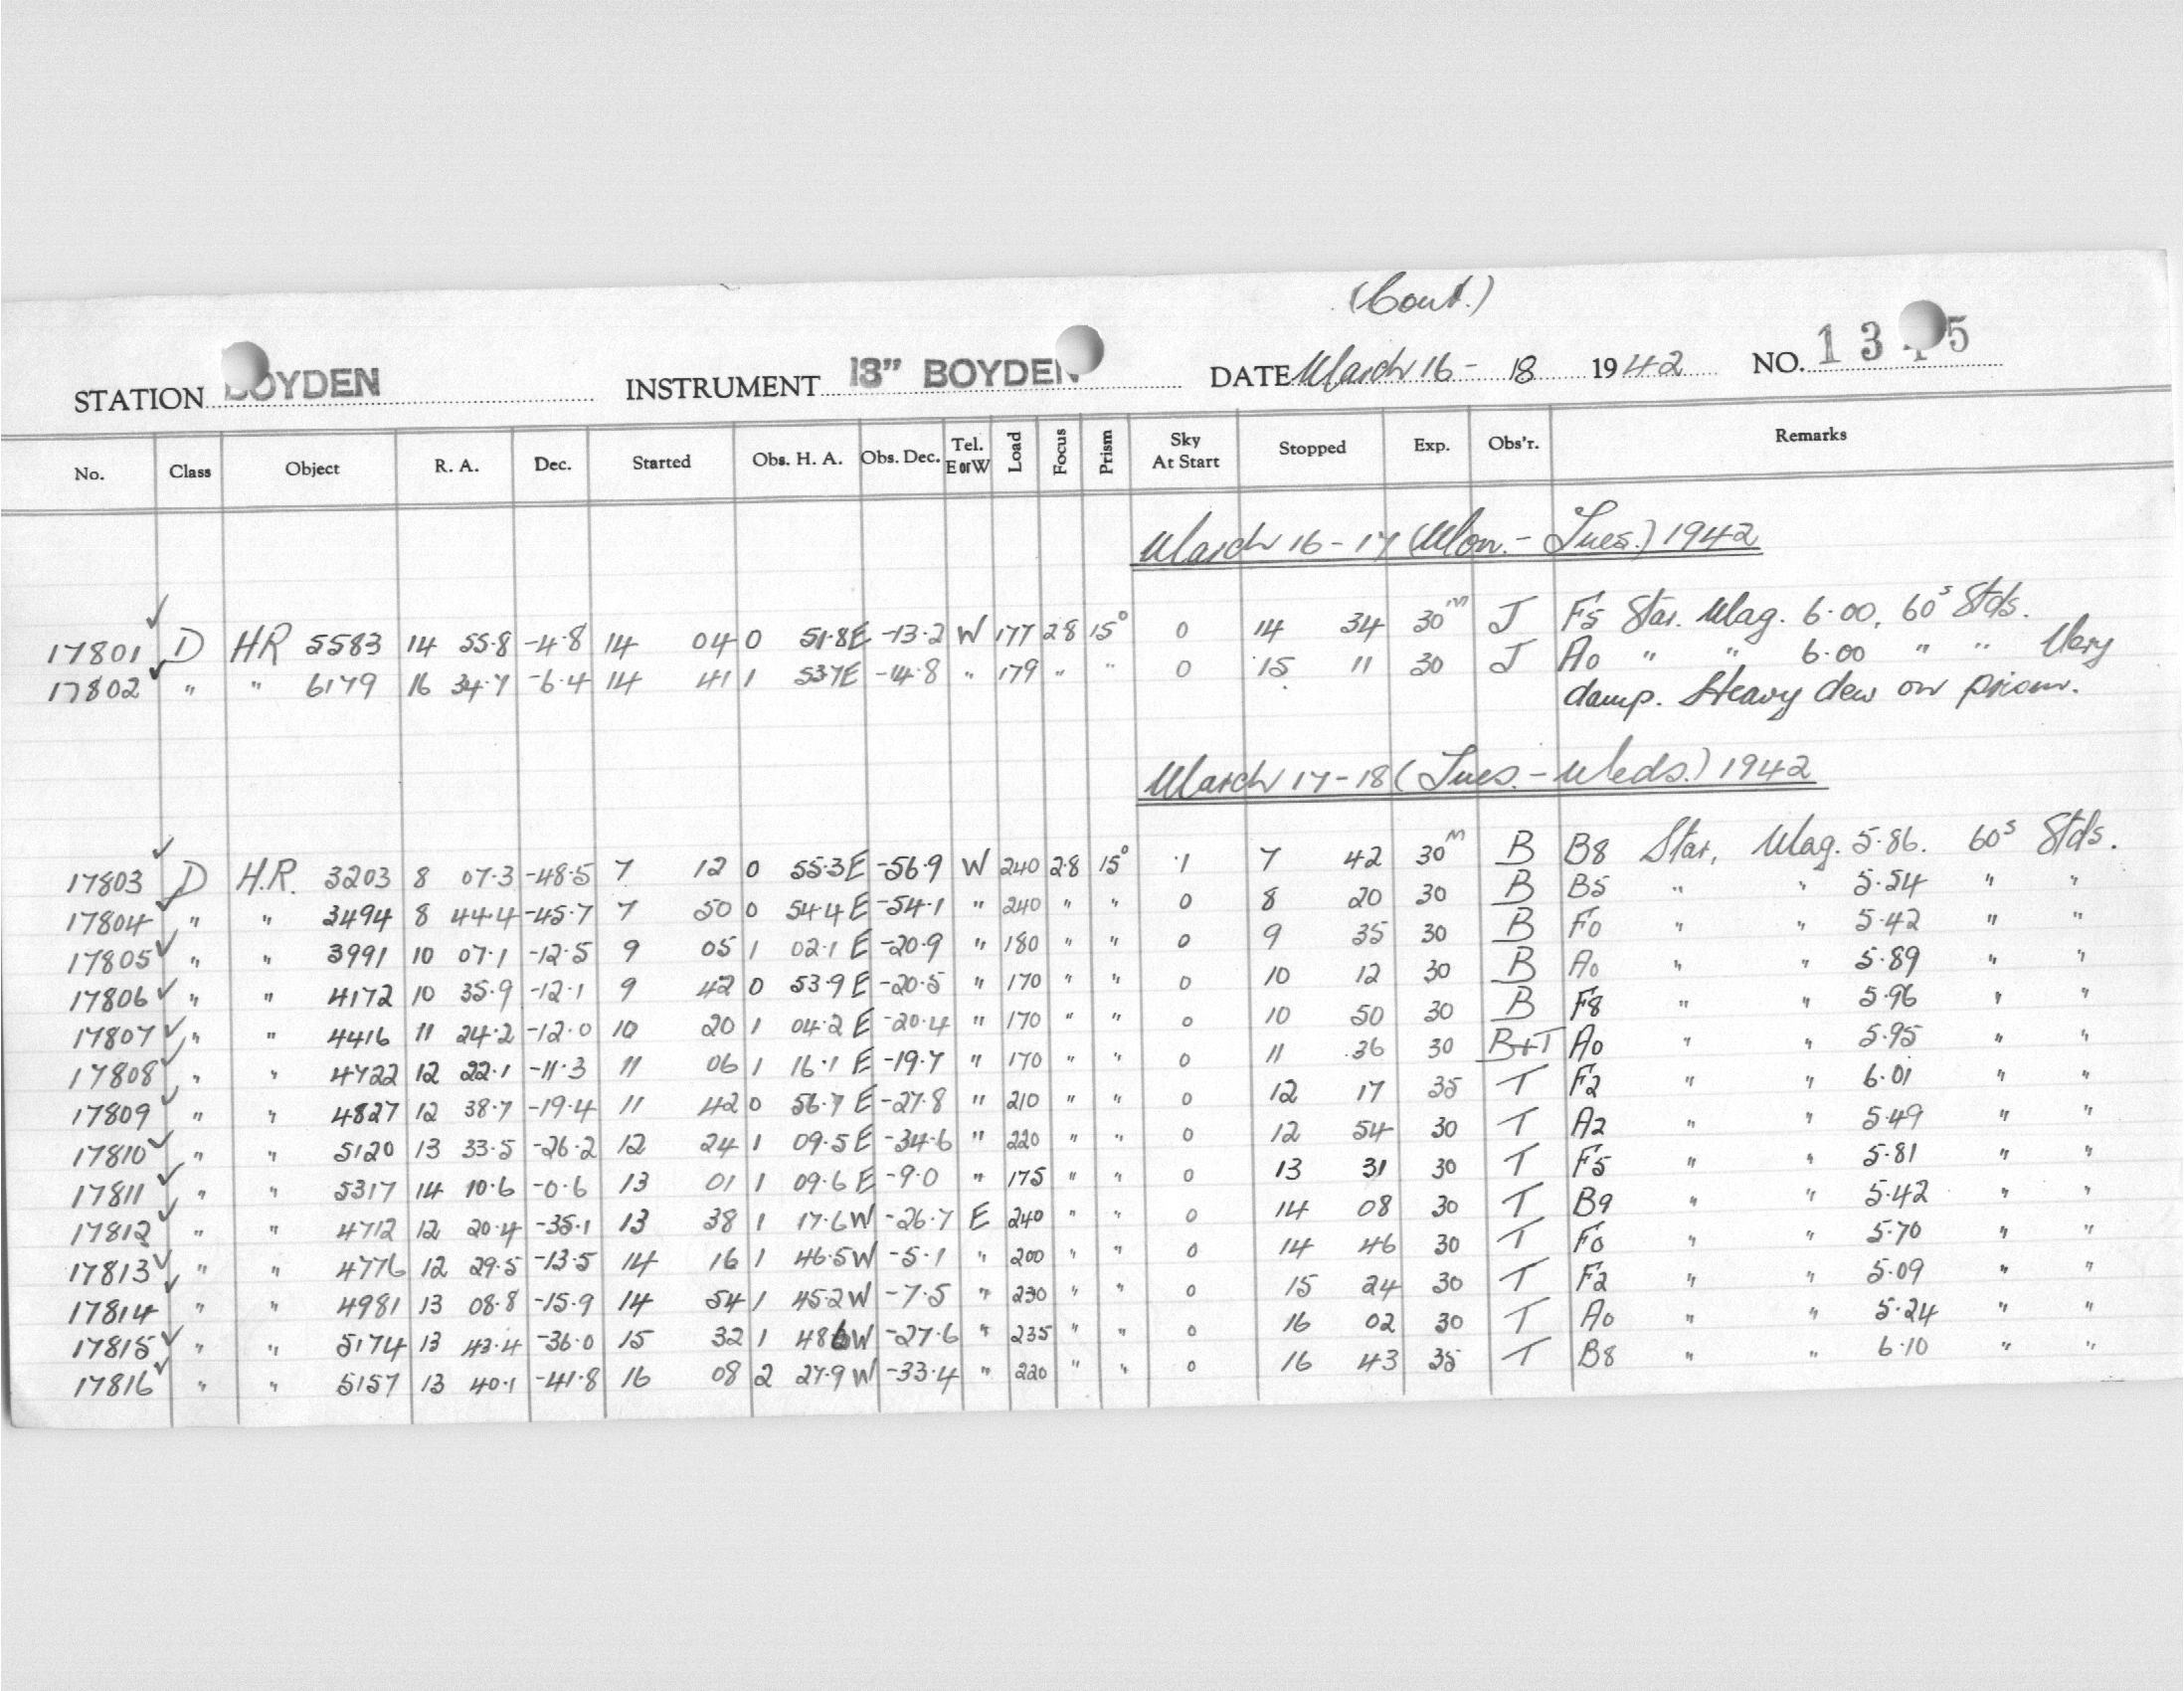 (Cont.)
STATION BOYDEN INSTRUMENT 13" BOYDEN DATE March 16 - 18 1942 NO. 13 5
No. Class Object R. A. Dec. Started Obs. H. A. Obs. Dec. Tel. E or W Load Focus Prism Sky At Start Stopped Exp. Obs'r. Remarks
March 16-17 (Mon.-Tues.) 1942
17801 ✓ D HR 5583 14 55.8 -4.8 14 04 0 51.8E -13.2 W 177 28 15° 0 14 34 30m J F5 Star. Mag. 6.00, 60s Stds.
17802 ✓ " " 6179 16 34.7 -6.4 14 41 1 53.7E -14.8 " 179 " " 0 15 11 30 J A0 " " 6.00 " " Very
damp. Heavy dew on prism.
March 17-18 (Tues.-Weds.) 1942
17803 ✓ D H.R. 3203 8 07.3 -48.5 7 12 0 55.3E -56.9 W 240 28 15° .1 7 42 30m B B8 Star, Mag. 5.86. 60s Stds.
17804 ✓ " " 3494 8 44.4 -45.7 7 50 0 54.4E -54.1 " 240 " " 0 8 20 30 B B5 " " 5.54 " "
17805 ✓ " " 3991 10 07.1 -12.5 9 05 1 02.1E -20.9 " 180 " " 0 9 35 30 B F0 " " 5.42 " "
17806 ✓ " " 4172 10 35.9 -12.1 9 42 0 53.9E -20.5 " 170 " " 0 10 12 30 B A0 " " 5.89 " "
17807 ✓ " " 4416 11 24.2 -12.0 10 20 1 04.2E -20.4 " 170 " " 0 10 50 30 B F8 " " 5.96 " "
17808 ✓ " " 4722 12 22.1 -11.3 11 06 1 16.1E -19.7 " 170 " " 0 11 36 30 B+T A0 " " 5.95 " "
17809 ✓ " " 4827 12 38.7 -19.4 11 42 0 56.7E -27.8 " 210 " " 0 12 17 35 T F2 " " 6.01 " "
17810 ✓ " " 5120 13 33.5 -26.2 12 24 1 09.5E -34.6 " 220 " " 0 12 54 30 T A2 " " 5.49 " "
17811 ✓ " " 5317 14 10.6 -0.6 13 01 1 09.6E -9.0 " 175 " " 0 13 31 30 T F5 " " 5.81 " "
17812 ✓ " " 4712 12 20.4 -35.1 13 38 1 17.6W -26.7 E 240 " " 0 14 08 30 T B9 " " 5.42 " "
17813 ✓ " " 4776 12 29.5 -13.5 14 16 1 46.5W -5.1 " 200 " " 0 14 46 30 T F0 " " 5.70 " "
17814 ✓ " " 4981 13 08.8 -15.9 14 54 1 45.2W -7.5 " 230 " " 0 15 24 30 T F2 " " 5.09 " "
17815 ✓ " " 5174 13 43.4 -36.0 15 32 1 48.6W -27.6 " 235 " " 0 16 02 30 T A0 " " 5.24 " "
17816 ✓ " " 5157 13 40.1 -41.8 16 08 2 27.9W -33.4 " 220 " " 0 16 43 35 T B8 " " 6.10 " "